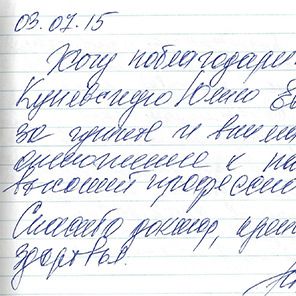 03.07.15
Хочу поблагодари
Юлию Ев
за чуткое и внима
отношение к па
высокий професси
Спасибо доктор, креп
здоровья.